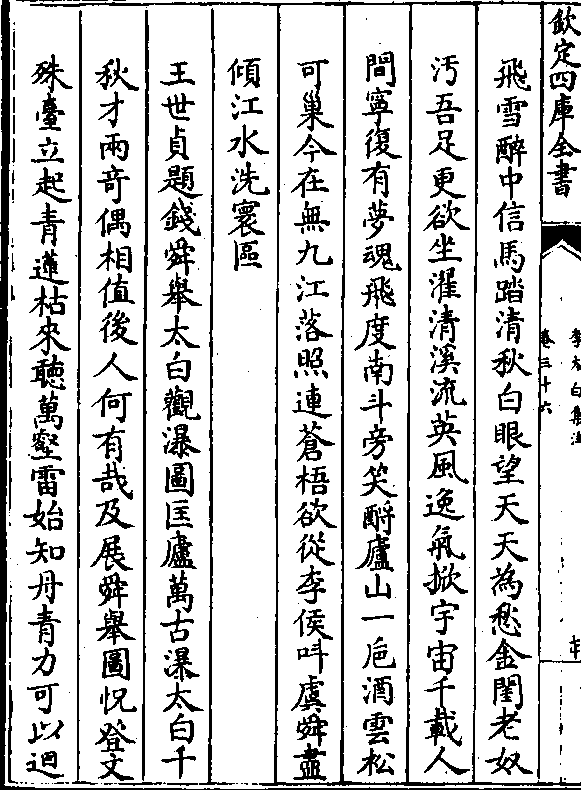 欽定四庫全書
卷三十六
飛雪醉中信馬踏清秋白眼望天天為愁金閨老奴
汚吾足更欲坐濯清溪流英風逸氣掀宇宙千載人
間寧復有夢魂飛度南斗旁笑酹廬山一巵酒雲松
可巢今在無九江落照連蒼梧欲從李侯叫虞舜盡
傾江水洗寰區
王世貞題錢舜舉太白觀瀑圖匡廬萬古瀑太白千
秋才兩竒偶相值後人何有哉及展舜舉圖怳登文
殊臺立起青蓮枯來聽萬壑雷始知丹青力可以迴